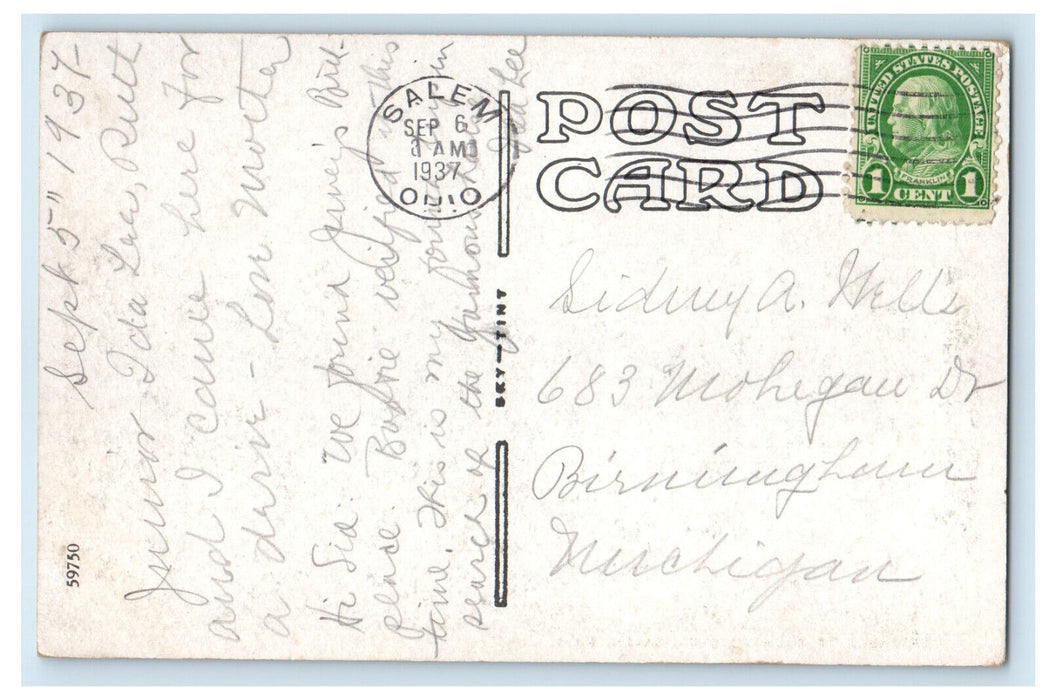 Sept 5" 1937-
Junior Ida Lea, Ruth
and I came here for
a drive - Love Mother
Hi Sid: We found Jamey's Birth-
place. Bookie verified it this
time. This is my
search of the
59750
SKY-TINT
SALEM
SEP 6
AM
1937
OHIO
POST
CARD
UNITED STATES POSTAGE
FRANKLIN
1 CENT 1
Sidney A. Wells
683 Mohegan Dr
Birmingham
Michigan